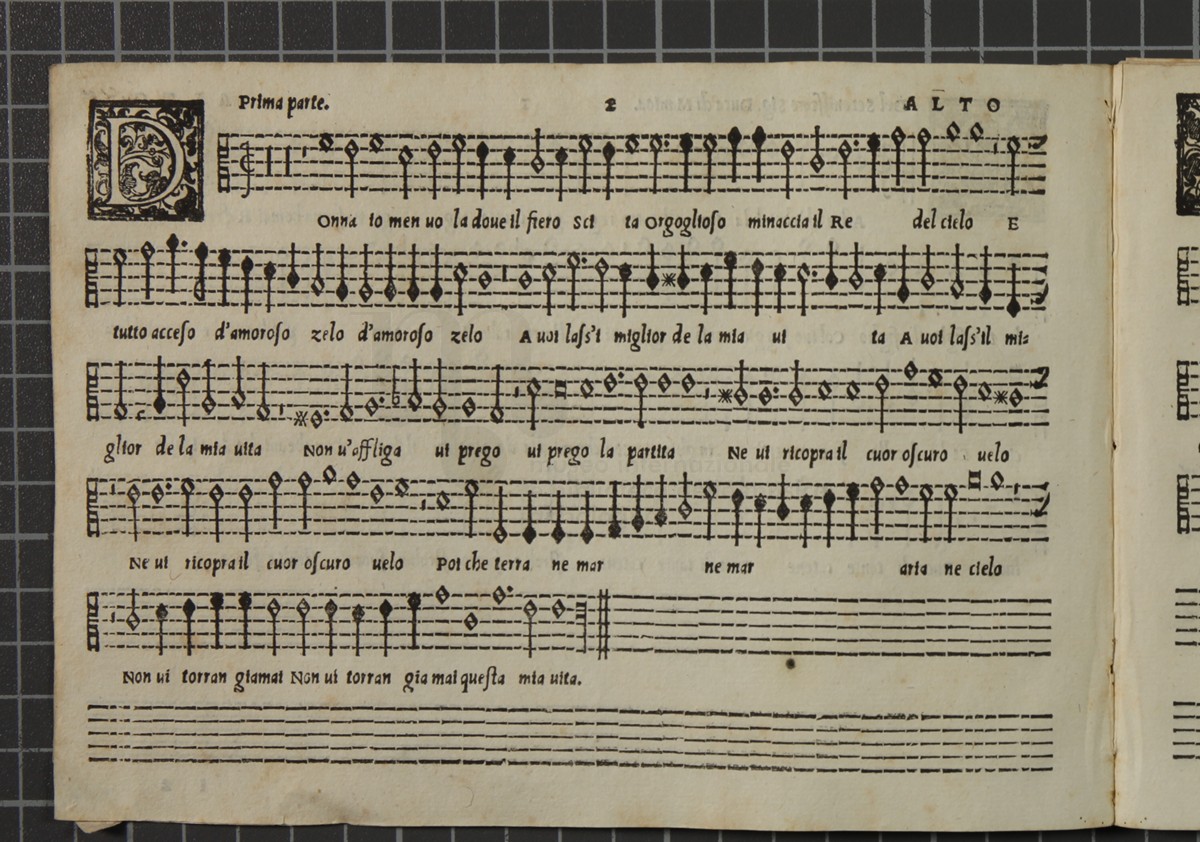 Prima parte. 2 ALTO
DOnna io men uo la doue il fiero Sci ta Orgoglioso minaccia il Re del cielo E
tutto acceso d'amoroso zelo d'amoroso zelo A uoi lass'i miglior de la mia ui ta A uoi lass'il mi
glior de la mia uita Non u'affliga ui prego ui prego la partita Ne ui ricopra il cuor oscuro uelo
Ne ui ricopra il cuor oscuro uelo Poi che terra ne mar ne mar aria ne cielo
Non ui torran giamai Non ui torran gia mai questa mia uita.